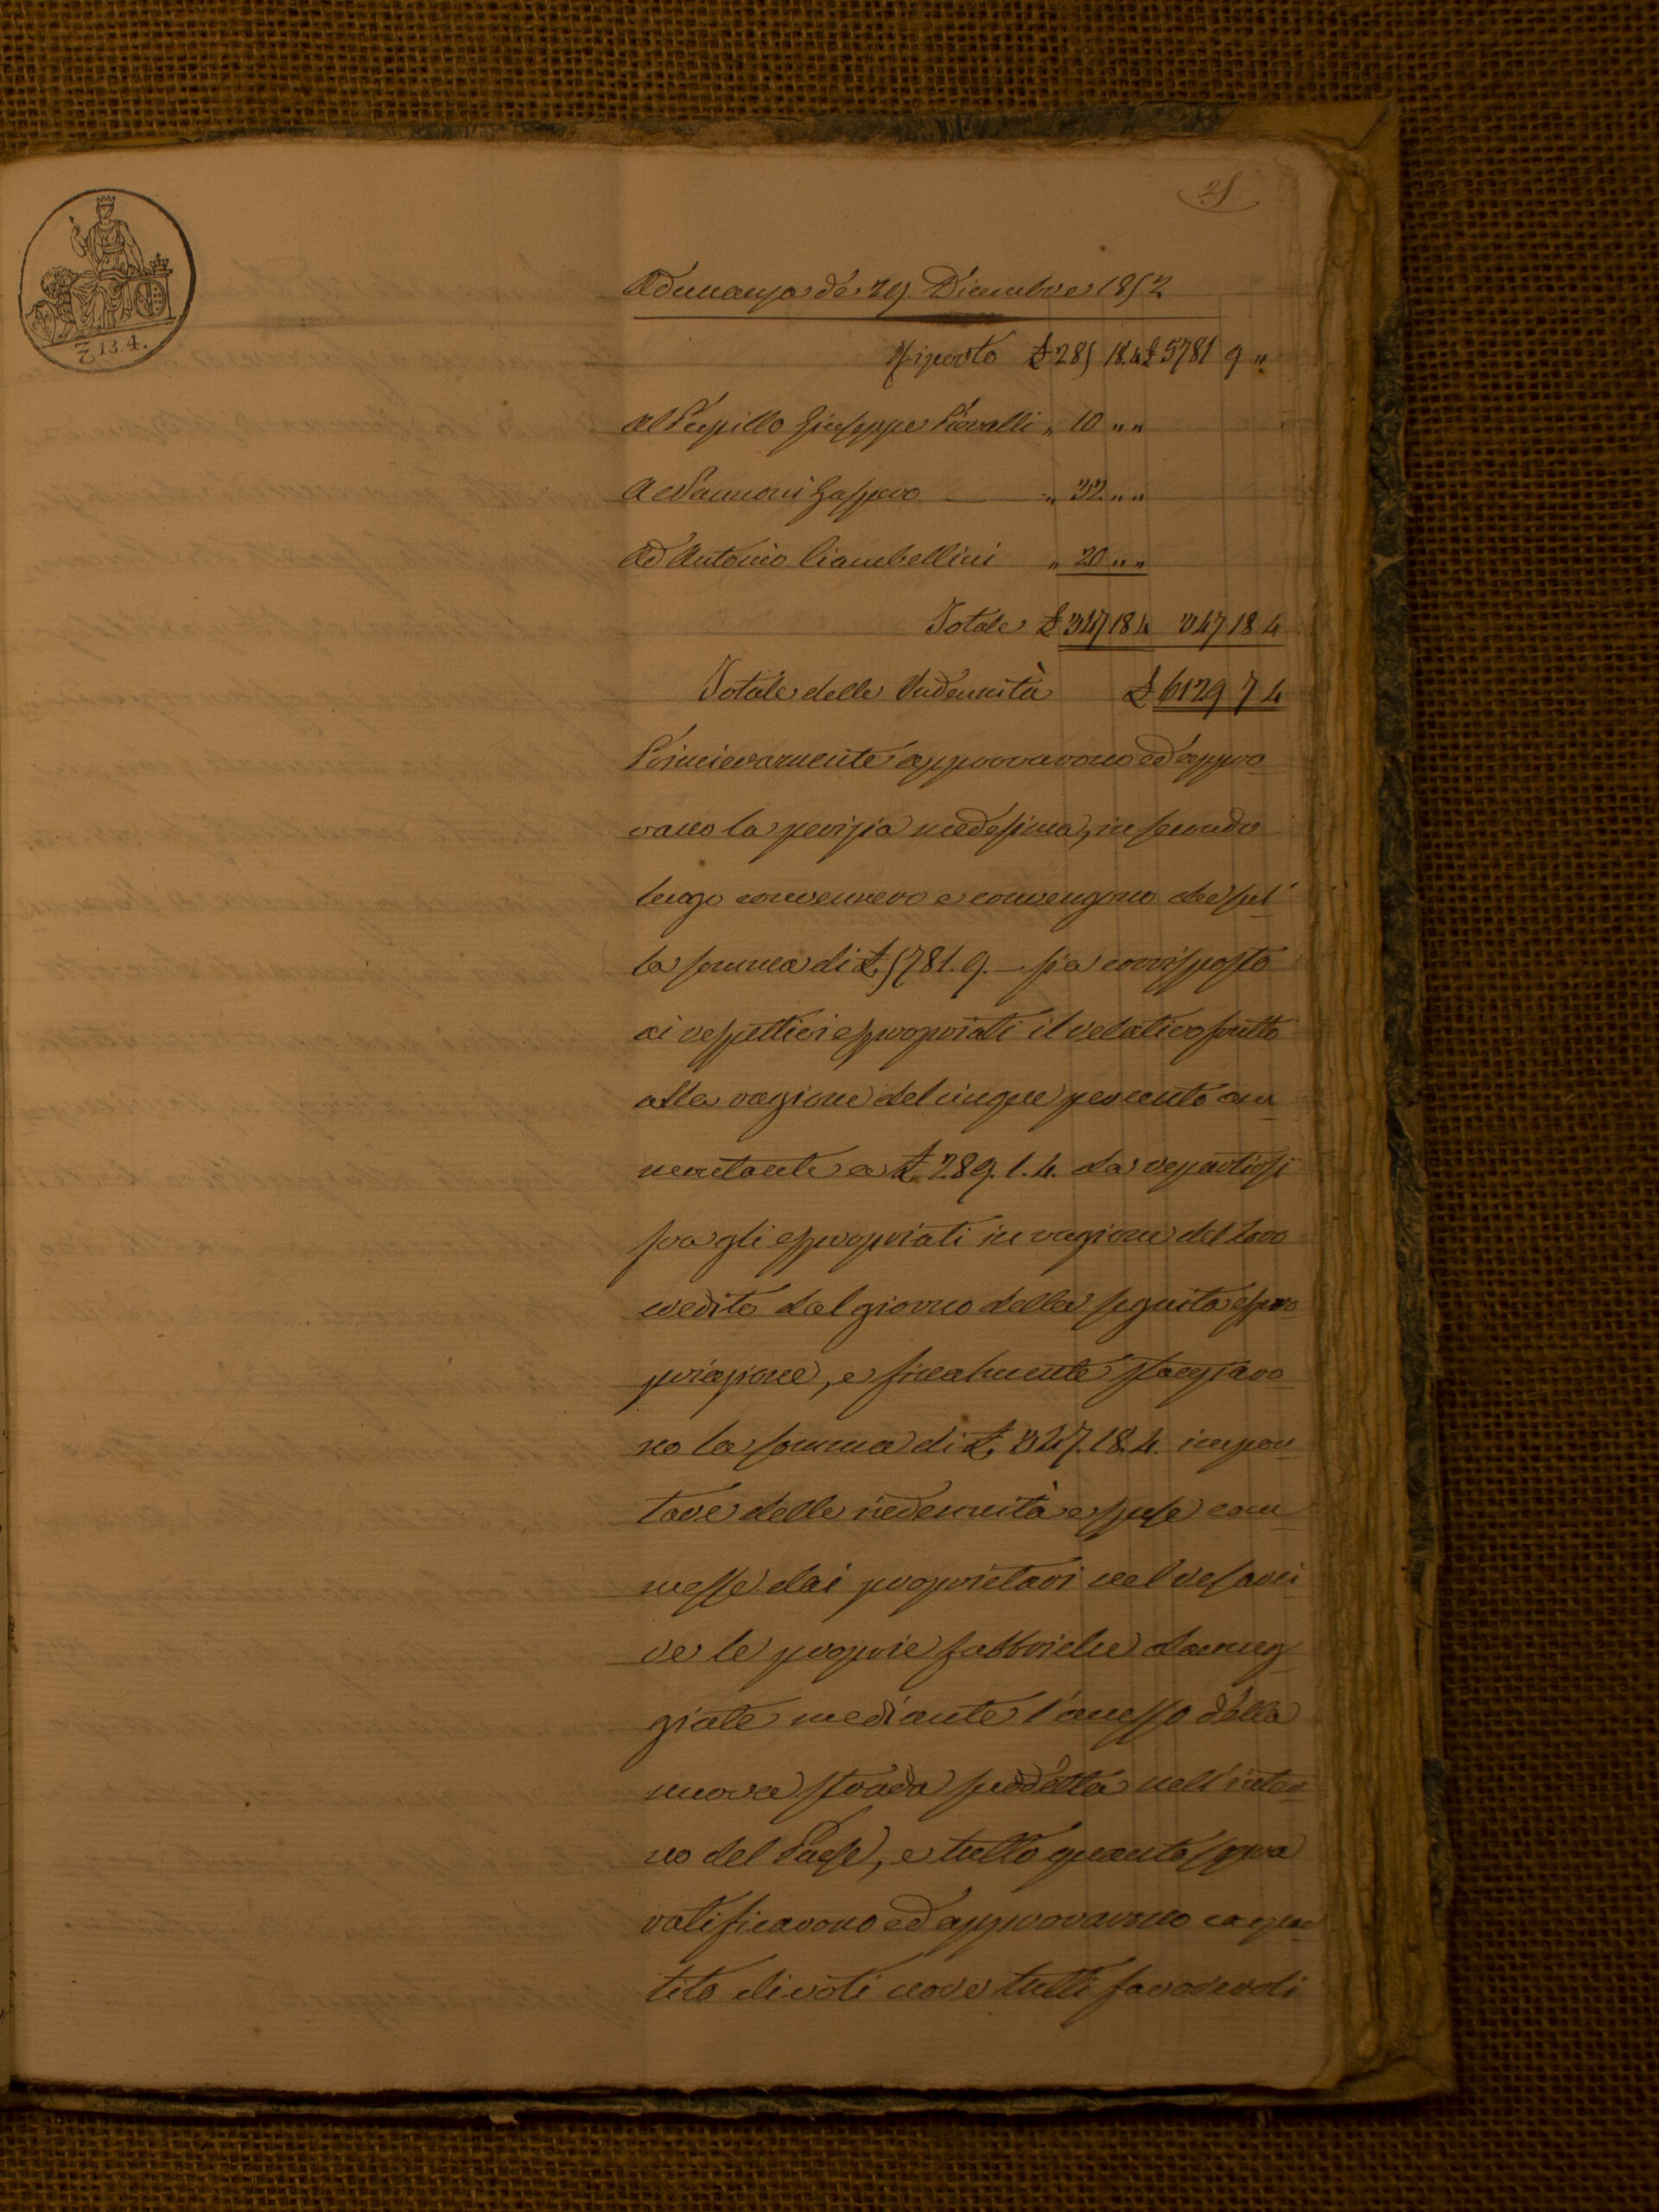 25
Adunanza de 29. Dicembre 1852
Riporto £ 285 18.4 £ 5781 9 "
Al Pupillo Giuseppe Pievalli " 10 " "
A Nannoni Gaspero " 32 " "
Ad Antonio Ciambellini " 20 " "
Totale £ 347 18 4 347 18 4
Totale delle Indennità £ 6129 7 4
Primieramente approvarono ed appro
vano la perizia medesima, in secondo
luogo convennero e convengono che sul
la somma di £ 5781. 9. - sia corrisposto
ai respettivi espropriati il relativo frutto
alla ragione del cinque per cento am
montante a £ 289. 1. 4. da repartirsi
fra gli espropriati in ragione del loro
credito dal giorno della seguita espro
priazione, e finalmente stanziaro
no la somma di £ 347. 18. 4. impor
tare delle indennità e spese com
messe dai proprietari nel resarci
re le proprie fabbriche danneg
giate mediante l'amesso della
nuova strada suddetta nell'inter
no del Paese, e tutto quanto sopra
ratificarono ed approvarono a par
tito di voti nove tutti favorevoli
Z 13. 4.